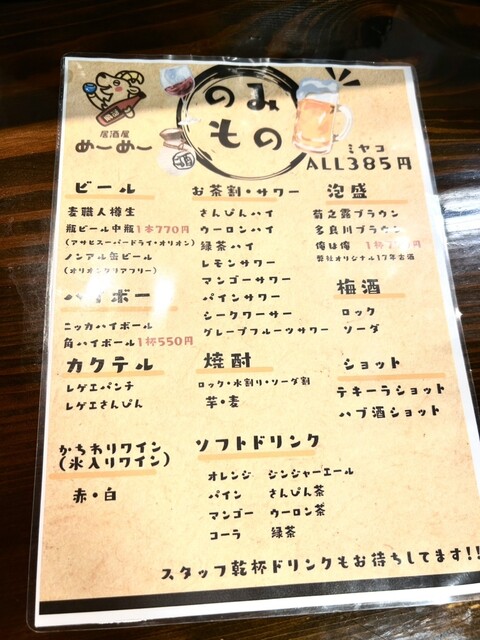 居酒屋
めーめー
のみ
もの
酒
ミヤコ
ALL385円
ビール
麦職人樽生
瓶ビール中瓶1本770円
(アサヒスーパードライ・オリオン)
ノンアル缶ビール
(オリオンクリアフリー)
ハイボー
ニッカハイボール
角ハイボール1杯550円
カクテル
レゲエパンチ
レゲエさんぴん
かちわりワイン
(氷入りワイン)
赤・白
お茶割・サワー
さんぴんハイ
ウーロンハイ
緑茶ハイ
レモンサワー
マンゴーサワー
パインサワー
シークワーサー
グレープフルーツサワー
焼酎
ロック・水割り・ソーダ割
芋・麦
ソフトドリンク
オレンジ ジンジャーエール
パイン さんぴん茶
マンゴー ウーロン茶
コーラ 緑茶
泡盛
菊之露ブラウン
多良川ブラウン
俺は俺 1杯 円
弊社オリジナル17年古酒
梅酒
ロック
ソーダ
ショット
テキーラショット
ハブ酒ショット
スタッフ乾杯ドリンクもお待ちしてます!!